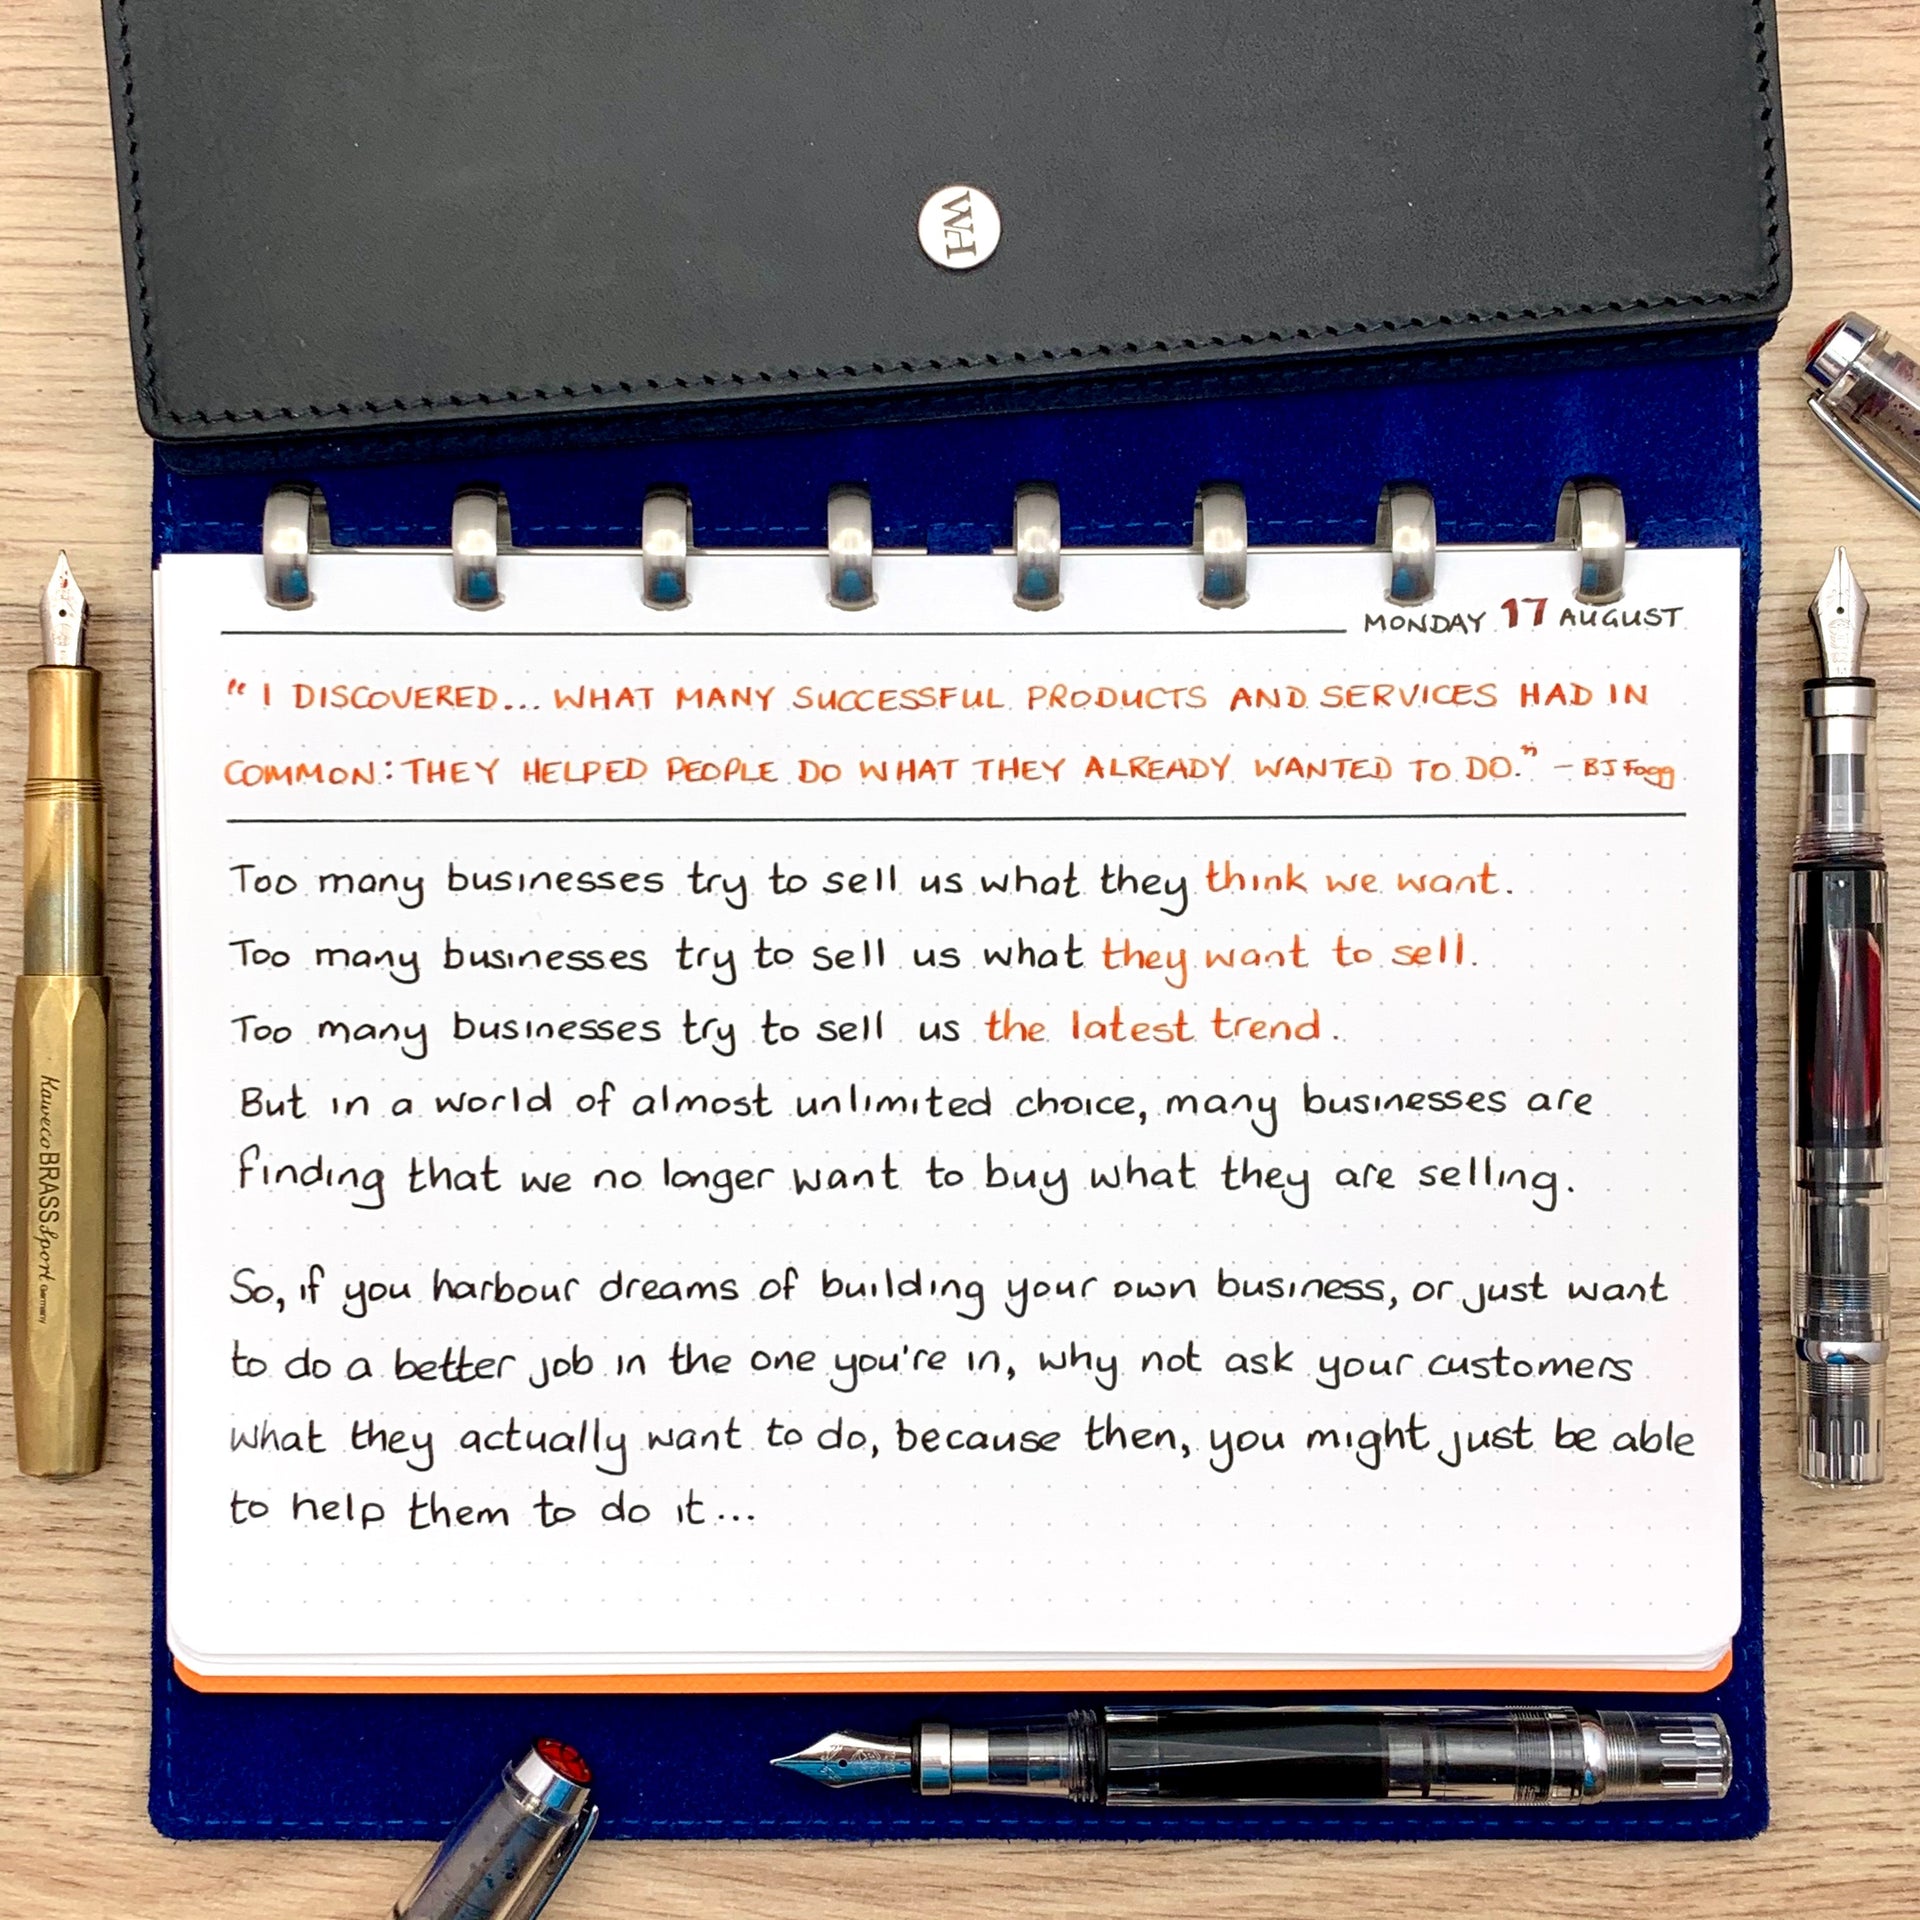 WH
MONDAY 17 AUGUST
" I DISCOVERED... WHAT MANY SUCCESSFUL PRODUCTS AND SERVICES HAD IN
COMMON: THEY HELPED PEOPLE DO WHAT THEY ALREADY WANTED TO DO." - BJ Fogg
Too many businesses try to sell us what they think we want.
Too many businesses try to sell us what they want to sell.
Too many businesses try to sell us the latest trend.
But in a world of almost unlimited choice, many businesses are
finding that we no longer want to buy what they are selling.
So, if you harbour dreams of building your own business, or just want
to do a better job in the one you're in, why not ask your customers
what they actually want to do, because then, you might just be able
to help them to do it...
Kaweco BRASS Sport Germany